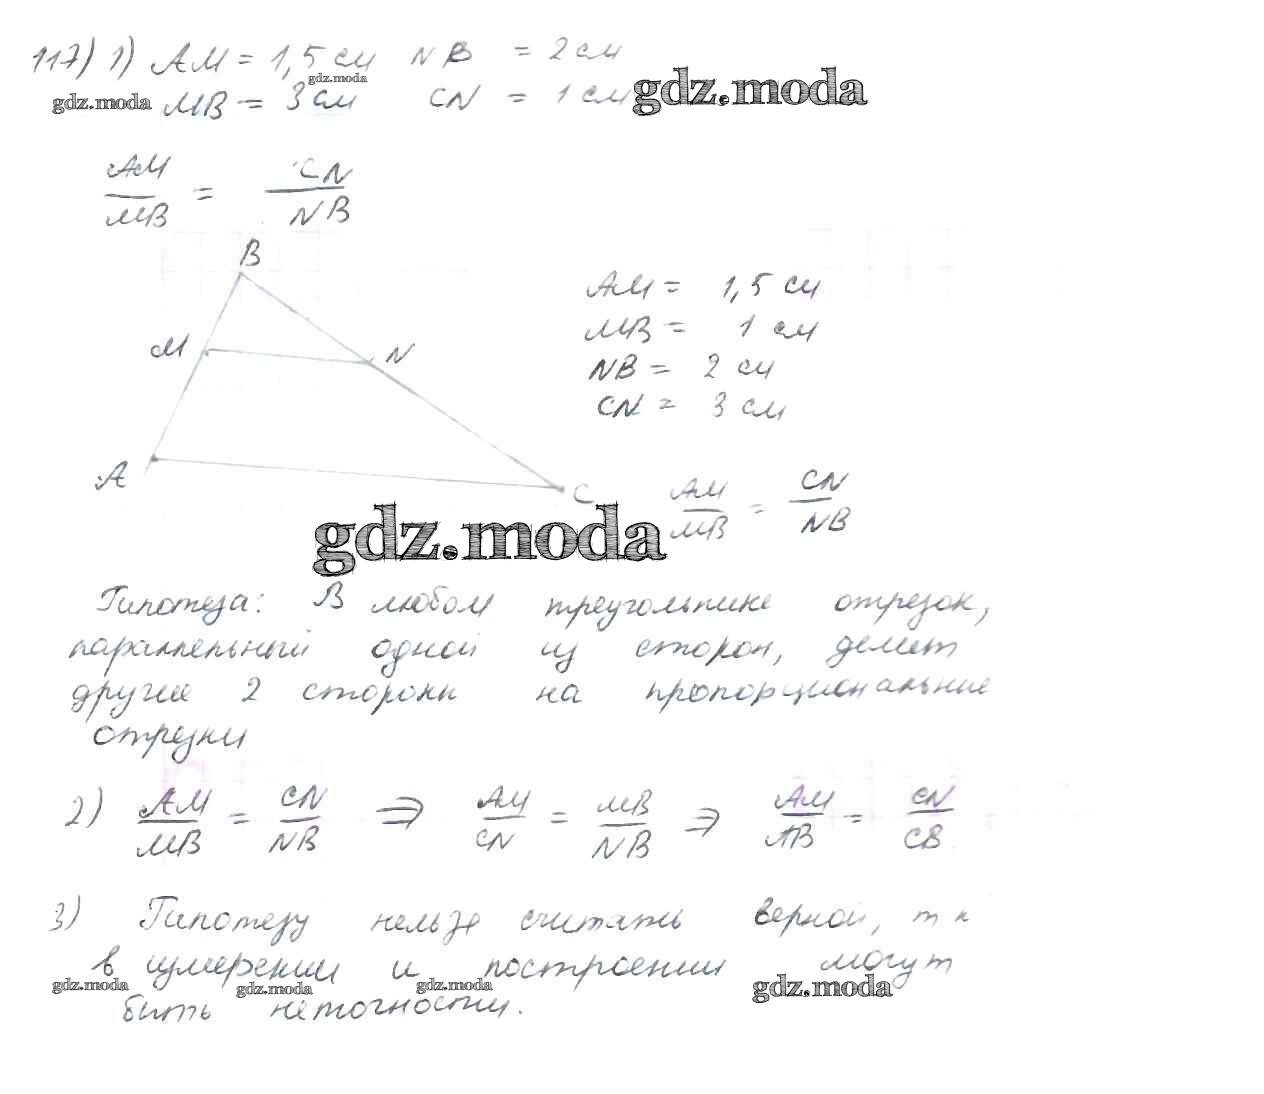 117) 1) АМ = 1,5 см NB = 2 см
gdz.moda
gdz.moda МВ = 3 см CN = 1 см gdz.moda
АМ/МВ = CN/NB
В
М N
А С
АМ = 1,5 см
МВ = 1 см
NB = 2 см
CN = 3 см
АМ/МВ = CN/NB
gdz.moda
Гипотеза: В любом треугольнике отрезок,
параллельный одной из сторон, делит
другие 2 стороны на пропорциональные
отрезки
2) АМ/МВ = CN/NB ⇒ АМ/CN = МВ/NB ⇒ АМ/АВ = CN/СВ
3) Гипотезу нельзя считать верной, т к
в измерении и построении могут
gdz.moda gdz.moda gdz.moda gdz.moda
быть неточности.